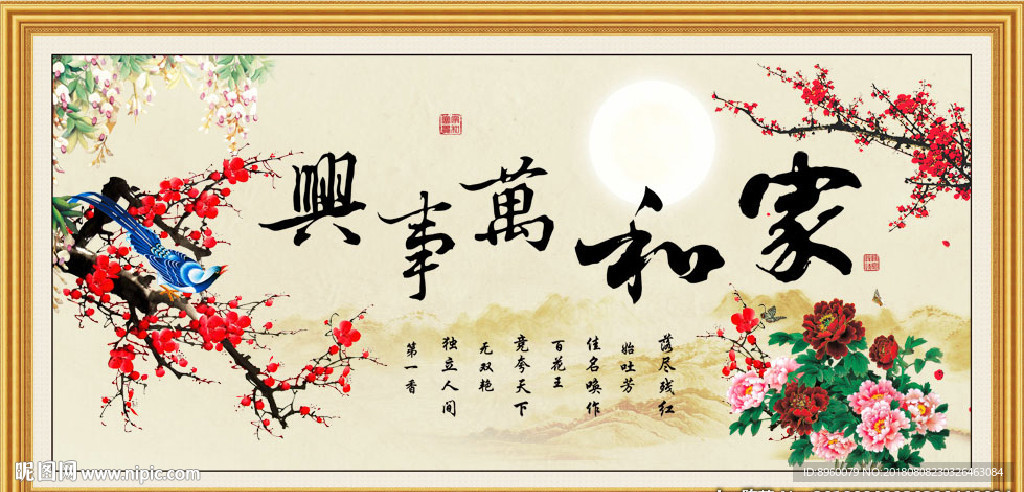 家和萬事興
落尽残红
始吐芳
佳名唤作
百花王
竞夸天下
无双艳
独立人间
第一香
昵图网 www.nipic.com
ID:8960079 NO:20180808230326463084